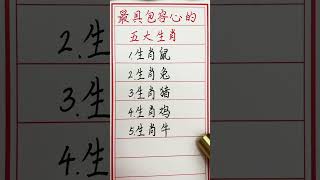 最具包容心的
五大生肖
1.生肖鼠
2.生肖兔
3.生肖猪
4.生肖鸡
5.生肖牛
2.生
3.生
4.生